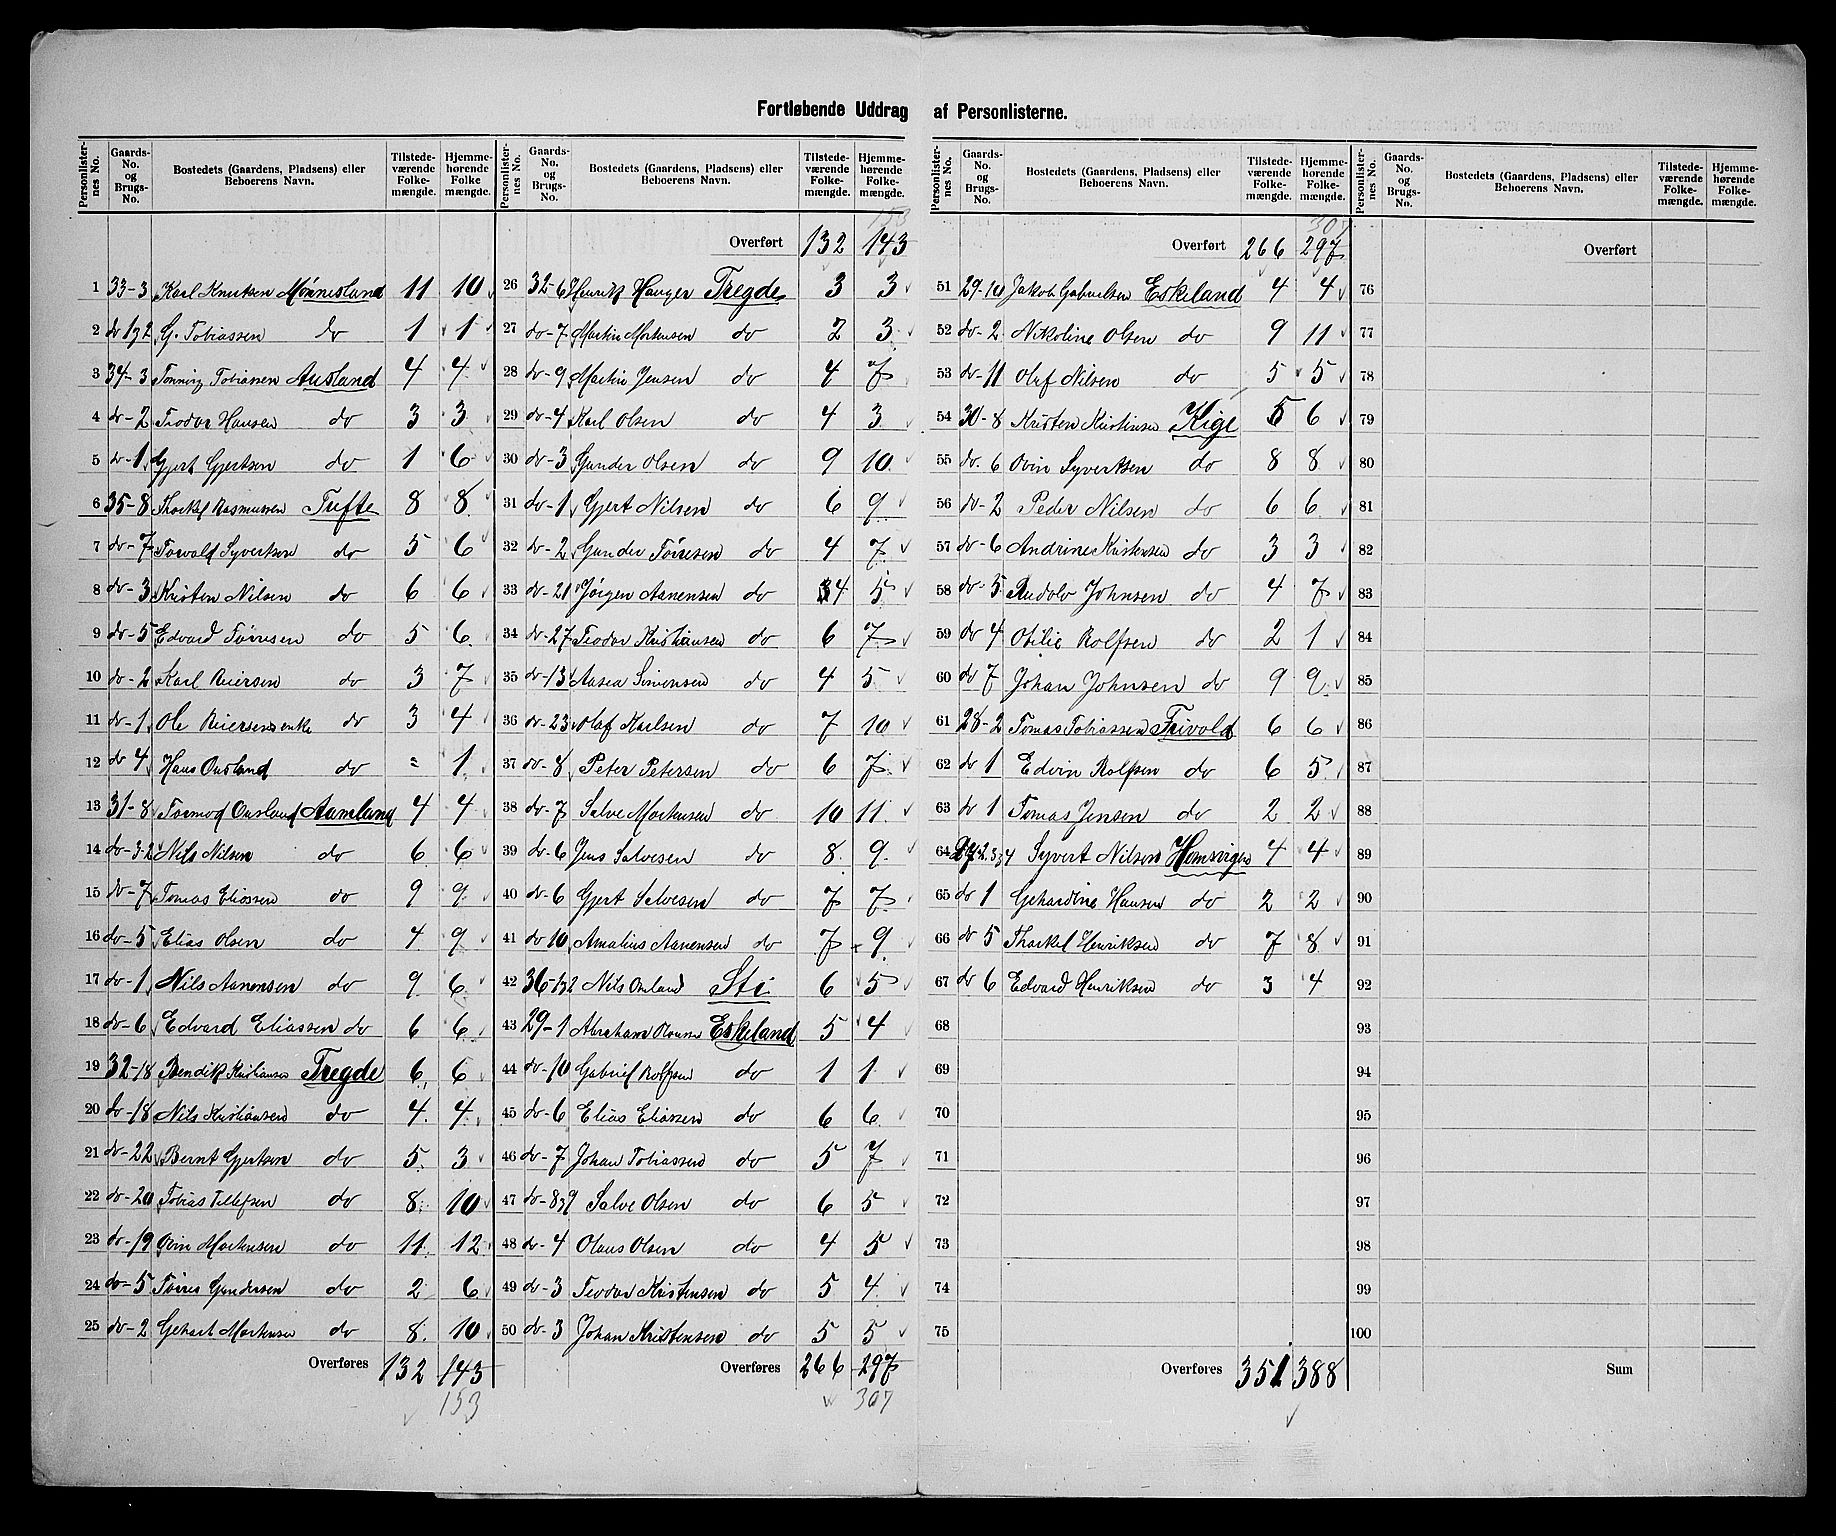 Fortløbende Uddrag af Personlisterne.
Personlisternes No. Gaards-No. og Brugs-No. Bostedets (Gaardens, Pladsens) eller Beboerens Navn. Tilstedeværende Folkemængde. Hjemmehørende Folkemængde.
1 33-3 Karl Knutsen Mønnesland 11 10
2 do 1,2 G. Tobiassen do 1 1
3 34-3 Tønnes Tobiassen Ausland 4 4
4 do-2 Teodor Hansen do 3 3
5 do-1 Gjert Gjertsen do 1 6
6 35-8 Thorkel Rasmussen Tufte 8 8
7 do-7 Torvald Syvertsen do 5 6
8 do-3 Kristen Nilsen do 6 6
9 do-5 Edvard Tørresen do 5 6
10 do-2 Karl Reiersen do 3 7
11 do-1 Ole Reiersens enke do 3 4
12 do 4 Hans Ousland do " 1
13 31-8 Tormod Ousland Aamland 4 4
14 do-3.2 Nils Nilsen do 6 6
15 do-7 Tomas Eliassen do 9 9
16 do-5 Elias Olsen do 4 9
17 do-1 Nils Aanensen do 9 6
18 do-6 Edvard Eliassen do 6 6
19 32-18 Bendik Kristiansen Tregde 6 6
20 do-18 Nils Kristiansen do 4 4
21 do-22 Bernt Gjertsen do 5 3
22 do-20 Tobias Tellefsen do 8 10
23 do-19 Ovin Mortensen do 11 12
24 do-5 Tørres Gundersen do 2 6
25 do-2 Gehart Mortensen do 8 10
Overføres 132 143
153
Personlisternes No. Gaards-No. og Brugs-No. Bostedets (Gaardens, Pladsens) eller Beboerens Navn. Tilstedeværende Folkemængde. Hjemmehørende Folkemængde.
153
Overført 132 143
26 32-6 Henrik Hauger Tregde 3 3
27 do-7 Martin Mortensen do 2 3
28 do-9 Martin Jensen do 4 7
29 do-4 Karl Olsen do 4 3
30 do-3 Gunder Olsen do 9 10
31 do-1 Gjert Nilsen do 6 9
32 do-2 Gunder Tørresen do 4 7
33 do-21 Jørgen Aanensen do 4 5
34 do-27 Teodor Kristiansen do 6 7
35 do-13 Aasea Simonsen do 4 5
36 do-23 Olaf Karlsen do 7 10
37 do-8 Peter Petersen do 6 7
38 do-7 Salve Mortensen do 10 11
39 do-6 Jens Salvesen do 8 9
40 do-6 Gjert Salvesen do 7 7
41 do 10 Amalius Aanensen do 7 9
42 36-1,2 Nils Omland Sti 6 5
43 29-1 Abraham Sti Eskeland 5 4
44 do-10 Gabriel Rolfsen do 1 1
45 do-6 Elias Eliassen do 6 6
46 do-7 Johan Tobiassen do 5 7
47 do-8,9 Salve Olsen do 6 5
48 do-4 Olaus Olsen do 4 5
49 do-3 Teodor Kristensen do 5 4
50 do-3 Johan Kristensen do 5 5
Overføres 266 297
307
Personlisternes No. Gaards-No. og Brugs-No. Bostedets (Gaardens, Pladsens) eller Beboerens Navn. Tilstedeværende Folkemængde. Hjemmehørende Folkemængde.
307
Overført 266 297
51 29-10 Jakob Gabrielsen Eskeland 4 4
52 do-2 Nikoline Olsen do 9 11
53 do-11 Olaf Nilsen do 5 5
54 30-8 Kristen Kristensen Kige 5 6
55 do. 6 Ovin Syvertsen do 8 8
56 do-2 Peder Nilsen do 6 6
57 do-6 Andrine Kristensen do 3 3
58 do-5 Rudolv Johnsen do 4 7
59 do 4 Otilie Rolfsen do 2 1
60 do 7 Johan Johnsen do 9 9
61 28-2 Tomas Tobiassen Frivold 6 6
62 do 1 Edvin Rolfsen do 6 5
63 do 1 Tomas Jensen do 2 2
64 27-2.3,4 Syvert Nilsen Hemsvigen 4 4
65 do 1 Gehardine Hansen do 2 2
66 do 5 Thorkel Henriksen do 7 8
67 do 6 Edvard Henriksen do 3 4
68
69
70
71
72
73
74
75
Overføres 351 388
Personlisternes No. Gaards-No. og Brugs-No. Bostedets (Gaardens, Pladsens) eller Beboerens Navn. Tilstedeværende Folkemængde. Hjemmehørende Folkemængde.
Overført
76
77
78
79
80
81
82
83
84
85
86
87
88
89
90
91
92
93
94
95
96
97
98
99
100
Sum